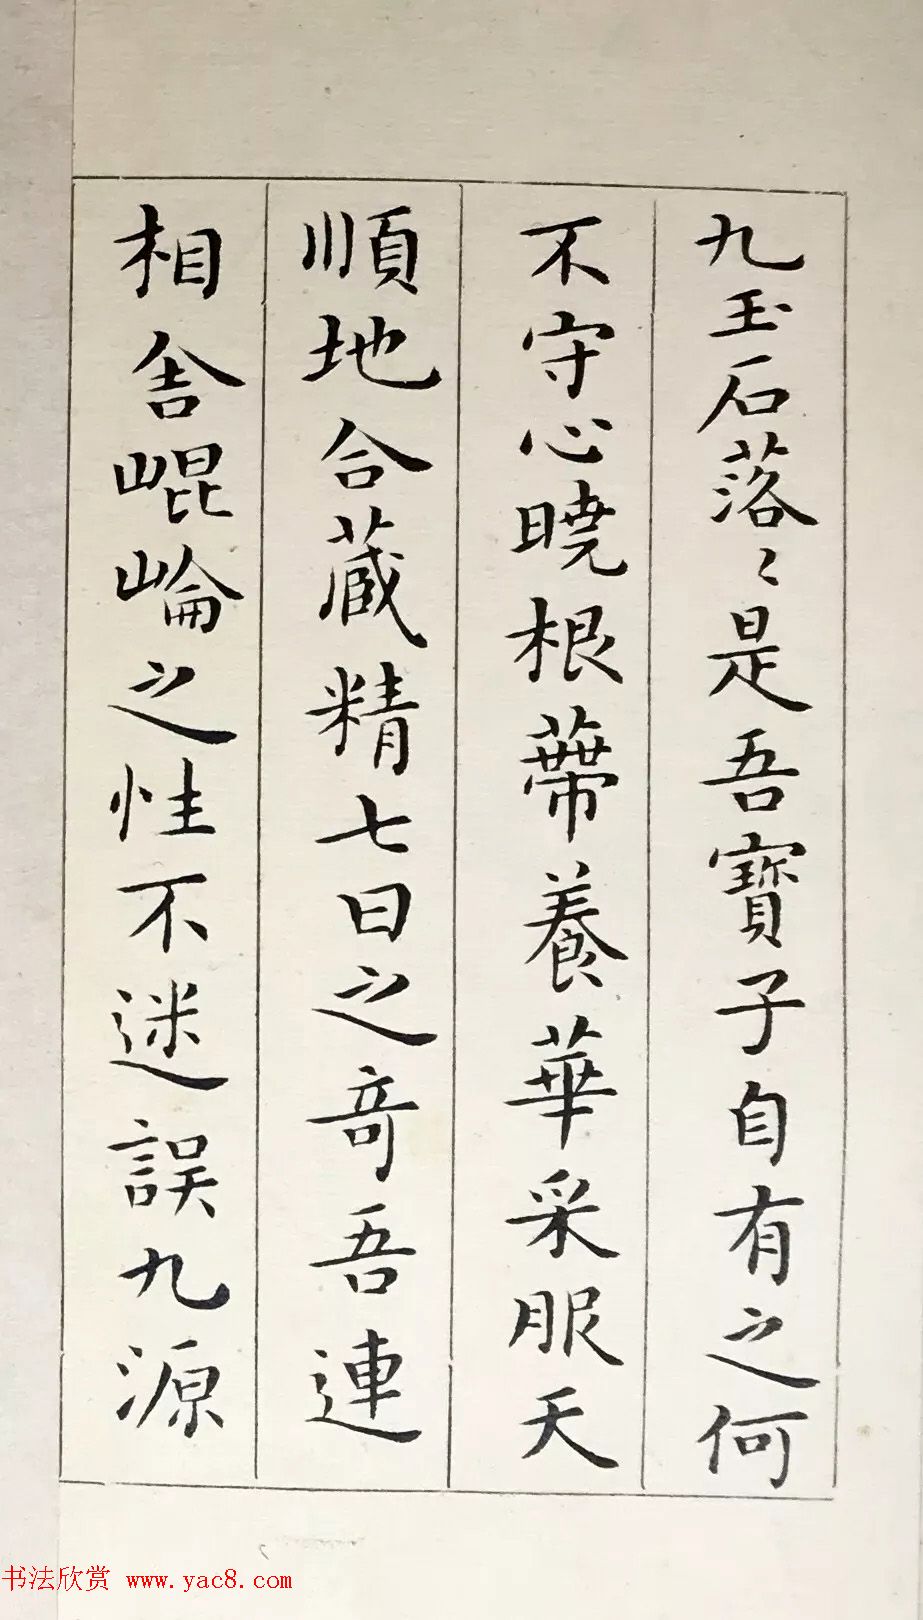 九玉石落〻是吾寶子自有之何
不守心曉根蔕養華采服天
順地合藏精七日之竒吾連
相舍崐崘之性不迷誤九源
书法欣赏 www.yac8.com